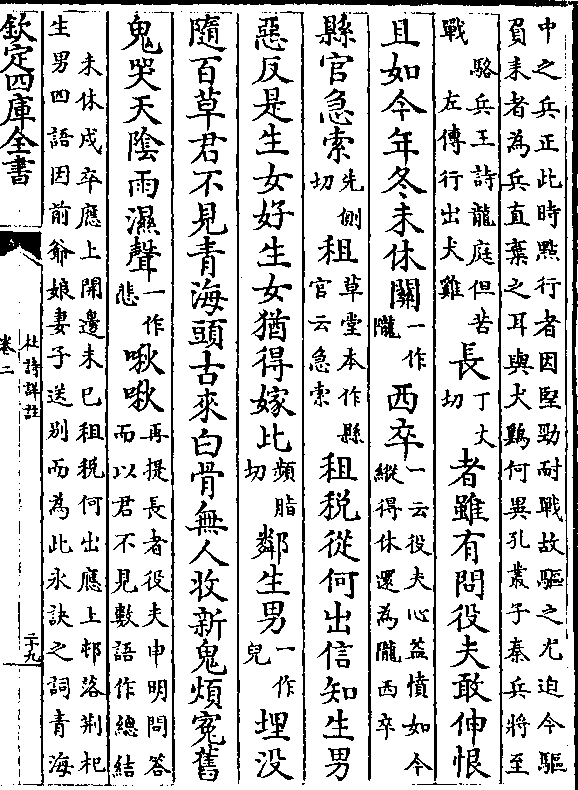 中之兵正此時㸃行者因堅勁耐戰故驅之尤迫今驅
負耒者為兵直棄之耳與犬鷄何異孔叢子秦兵將至
戰
駱兵王詩龍庭但苦
左傳行出犬雞
長
丁丈
切
者雖有問役夫敢伸恨
且如今年冬未休關
一作
隴
西卒
一云役夫心益憤如今
縱得休還為隴西卒
縣官急索
先側
切
租
草堂本作縣
官云急索
租税從何出信知生男
惡反是生女好生女猶得嫁比
頻脂
切
鄰生男
一作
兒
埋没
隨百草君不見青海頭古來白骨無人收新鬼煩寃舊
鬼哭天陰雨濕聲
一作
悲
啾啾
再提長者役夫申明問答
而以君不見數語作總結
未休戍卒應上開邊未已租税何出應上邨落荆杞
生男四語因前爺娘妻子送别而為此永訣之詞青海
欽定四庫全書
杜詩詳註
卷二
二十九